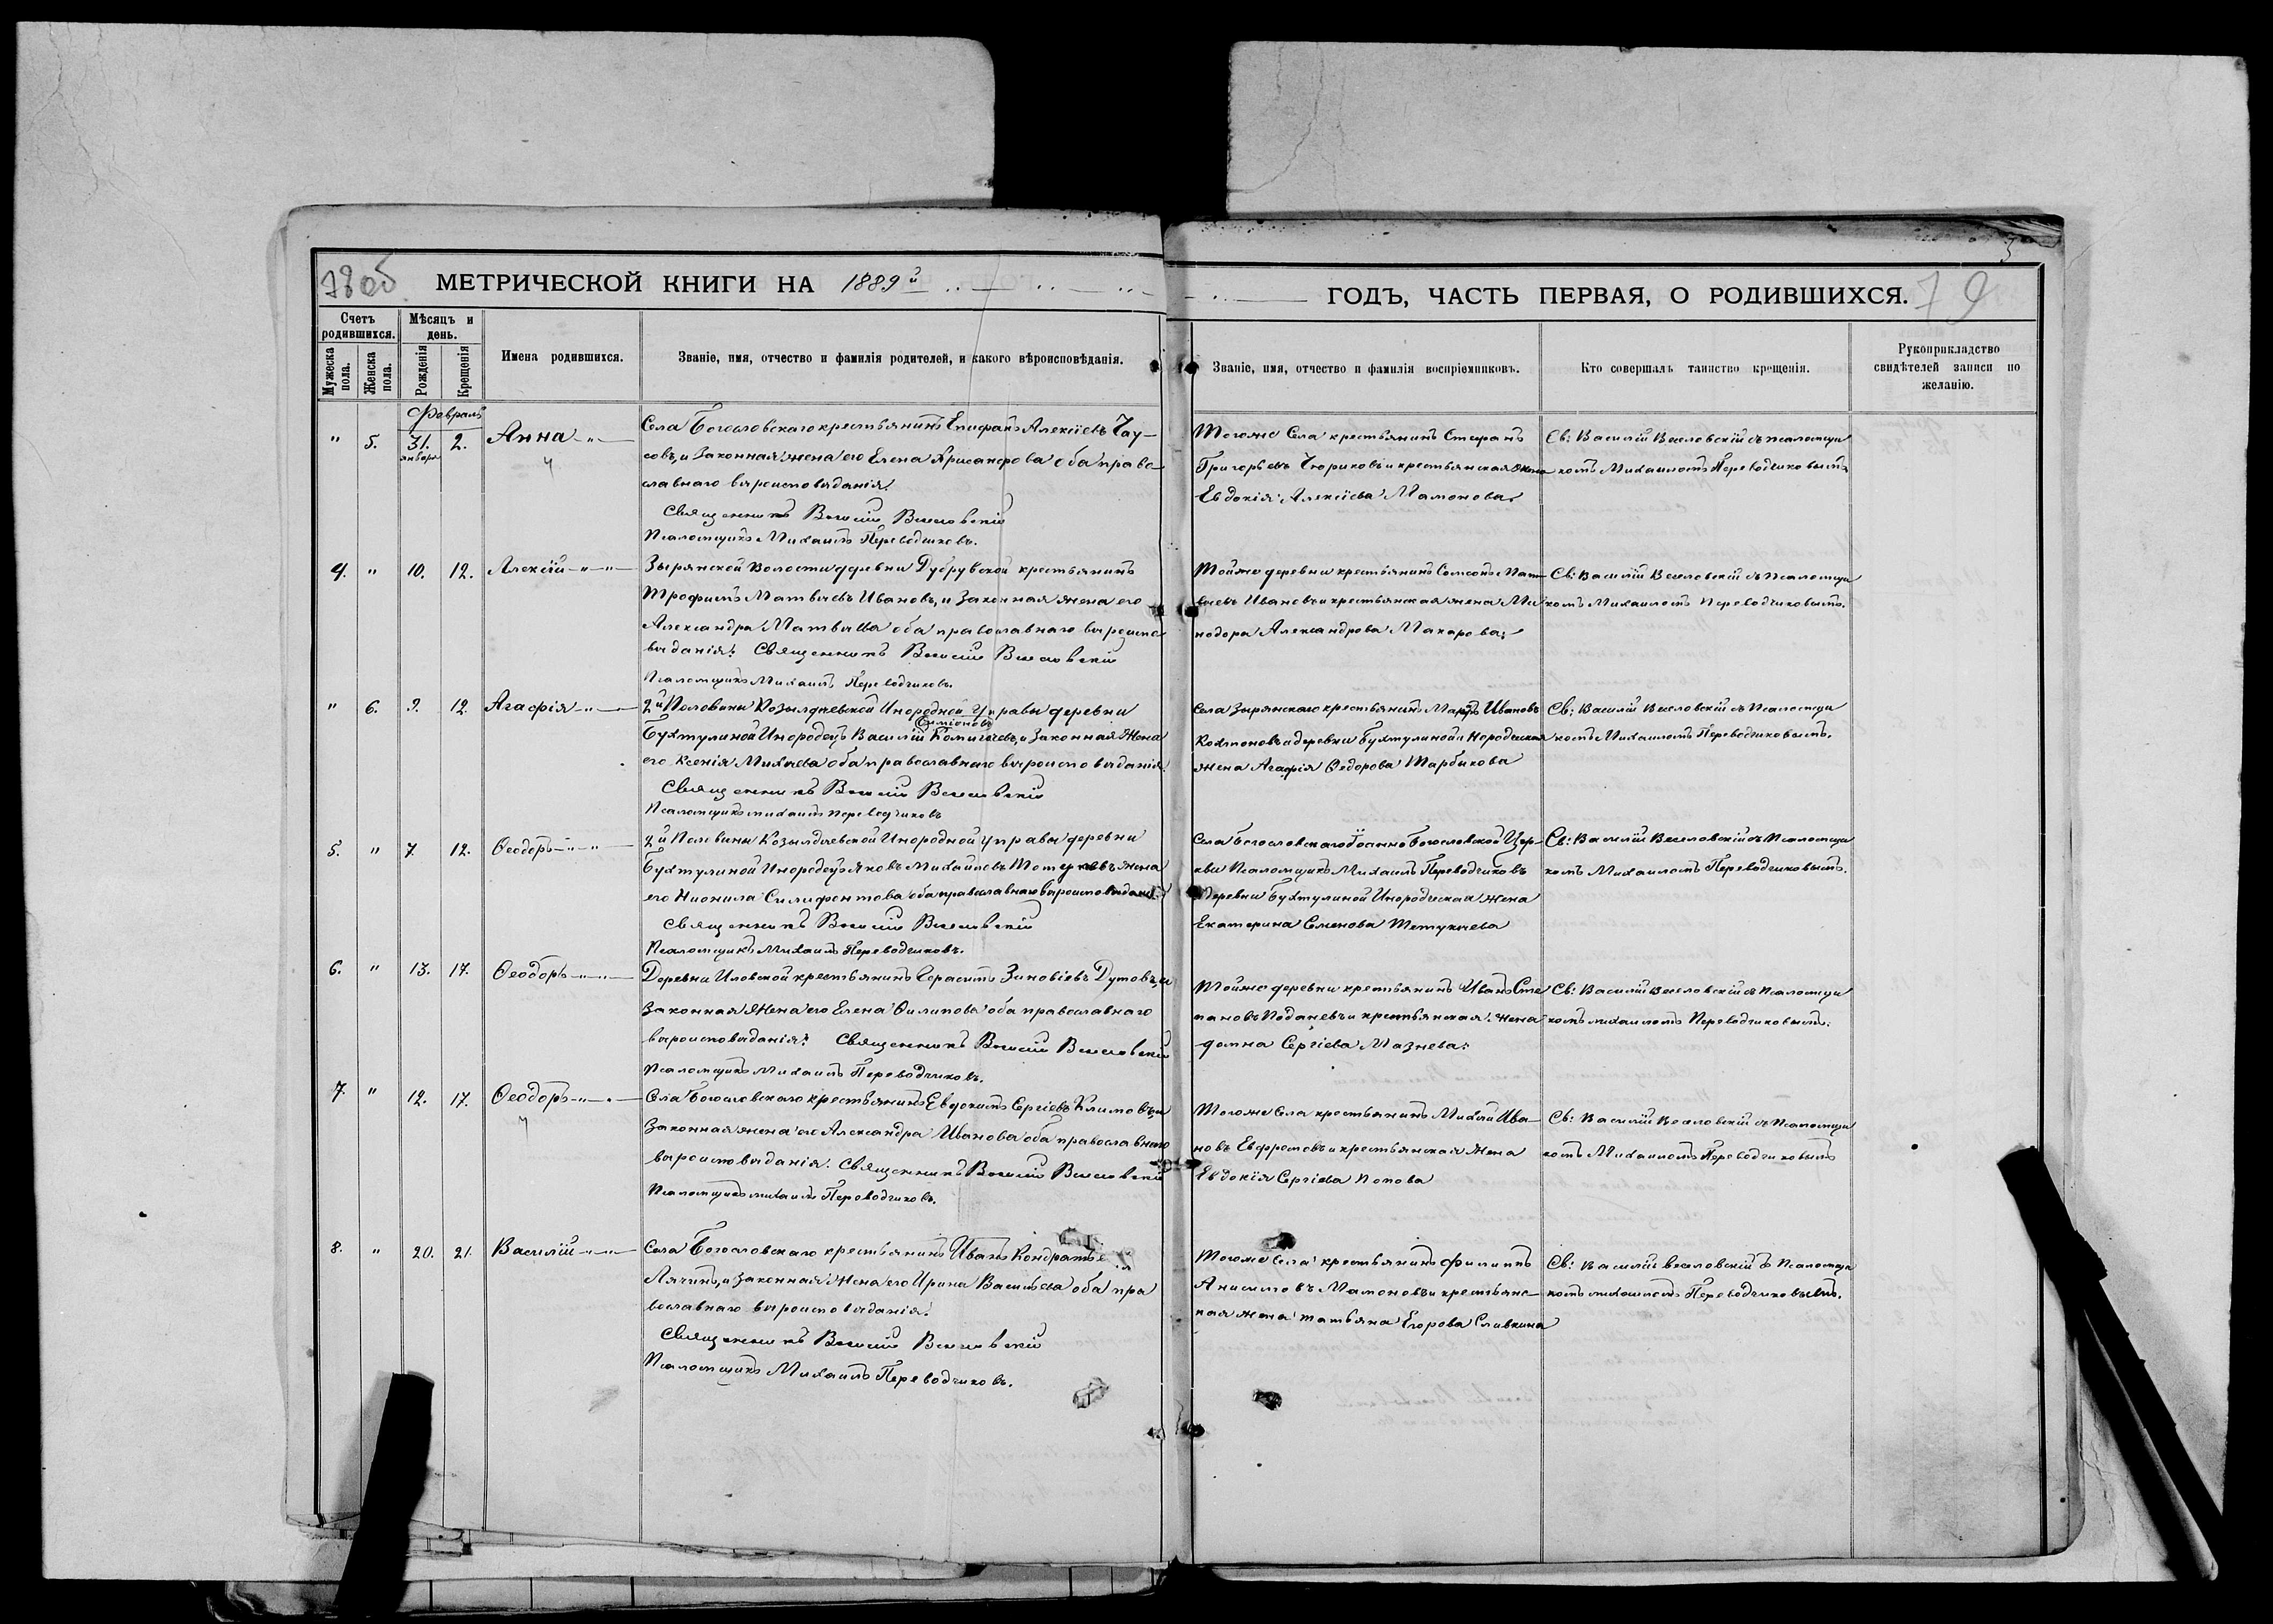 78об
МЕТРИЧЕСКОЙ КНИГИ НА 1889й
ГОДЪ, ЧАСТЬ ПЕРВАЯ, О РОДИВШИХСЯ.
3
79
Счетъ родившихся.
Мужеска пола.
Женска пола.
Мѣсяцъ и день.
Рожденія
Крещенія
Имена родившихся.
Званіе, имя, отчество и фамилія родителей, и какого вѣроисповѣданія.
Званіе, имя, отчество и фамилія воспріемниковъ.
Кто совершалъ таинство крещенія.
Рукоприкладство свидѣтелей записи по желанію.
Февраль
" 5. 31. января 2. Анна
Села Богословскаго крестьянинъ Епифанъ Алексіевъ Чау-
совъ, и законная жена его Елена Хрисанфова оба право
славнаго вѣроисповѣданія.
Священникъ Василій Веселовскій
Псаломщикъ Михаилъ Переводчиковъ.
Тогоже Села крестьянинъ Стефанъ
Григорьевъ Чюриковъ и крестьянская жена
Евдокія Алексіева Мамонова.
Св: Василій Веселовскій съ псаломщи
комъ Михаиломъ Переводчиковымъ
4. " 10. 12. Алексій
Зырянской Волости деревни Дубровской крестьянинъ
Трофимъ Матвѣевъ Ивановъ, и законная жена его
Александра Матвѣева оба православнаго вѣроиспо
вѣданія. Священникъ Василій Веселовскій
Псаломщикъ Михаилъ Переводчиковъ.
Тойже деревни крестьянинъ Самсонъ Мат
вѣевъ Ивановъ и крестьянская жена Ми
нодора Александрова Макарова.
Св: Василій Веселовскій съ Псаломщи
комъ Михаиломъ Переводчиковымъ.
" 6. 9. 12. Агафія
2й Половины Козылдѣевской Инородной Управы деревни
Симіоновъ
Бухтулиной Инородецъ Василій Комичевъ, и законная Жена
его Ксенія Михѣева оба православнаго вѣроисповѣданія.
Священникъ Василій Веселовскій
Псаломщикъ михаилъ переводчиковъ
Села Зырянскаго крестьянинъ Ивановъ
деревни Бухтулиной Инородческая
жена Агафія Ѳедорова Тарбыкова
Св: Василій Веселовскій съ Псаломщи
комъ Михаиломъ Переводчиковымъ.
5. " 7. 12. Ѳеодоръ
2й Половины Козылдѣевской Инородной управы деревни
Бухтулиной Инородецъ Яковъ Михайловъ жена
его Нионила Силифонтова оба православнаго вѣроисповѣданія
Священникъ Василій Веселовскій
Псаломщикъ Михаилъ Переводчиковъ.
Села Богословскаго Іоанно Богословской Цер-
кви Псаломщикъ Михаилъ Переводчиковъ
деревни Бухтулиной Инородческая жена
Екатерина Семенова Тетукчева
Св: Василій Веселовскій съ Псаломщи
комъ Михаиломъ Переводчиковымъ.
6. " 13. 17. Ѳеодоръ
Деревни Иловской крестьянинъ Герасимъ Зиновіевъ Дутовъ, и
законная Жена его Елена Филипова оба православнаго
вѣроисповѣданія. Священникъ Василій Веселовскій
Псаломщикъ Михаилъ Переводчиковъ.
Тойже деревни крестьянинъ Иванъ Сте
пановъ Поданевъ и крестьянская жена
домна Сергіева Мазнева.
Св: Василій Веселовскій съ Псаломщи
комъ михаиломъ Переводчиковымъ.
7. " 12. 17. Ѳеодоръ
Села Богословскаго крестьянинъ Евдокимъ Сергіевъ Климовъ, и
законная жена его Александра Иванова оба православнаго
вѣроисповѣданія. Священникъ Василій Веселовскій
Псаломщикъ михаилъ Переводчиковъ.
Тогоже Села крестьянинъ Михаилъ Ива
новъ Евфремовъ и крестьянская Жена
Евдокія Сергіева Попова
Св: Василій Веселовскій съ Псаломщи
комъ Михаиломъ Переводчиковымъ
8. " 20. 21. Василій
Села Богословскаго крестьянинъ Иванъ Кондратье
Лячинъ, и законная Жена его Ирина Васильева оба пра
вославнаго вѣроисповѣданія.
Священникъ Василій Веселовскій
Псаломщикъ Михаилъ Переводчиковъ.
Тогоже Села крестьянинъ Филиппъ
Анисимовъ Мамоновъ и крестьянс
кая жена татьяна Егорова Сливкина
Св: Василій Веселовскій съ Псаломщи
комъ михаиломъ Переводчиковымъ.